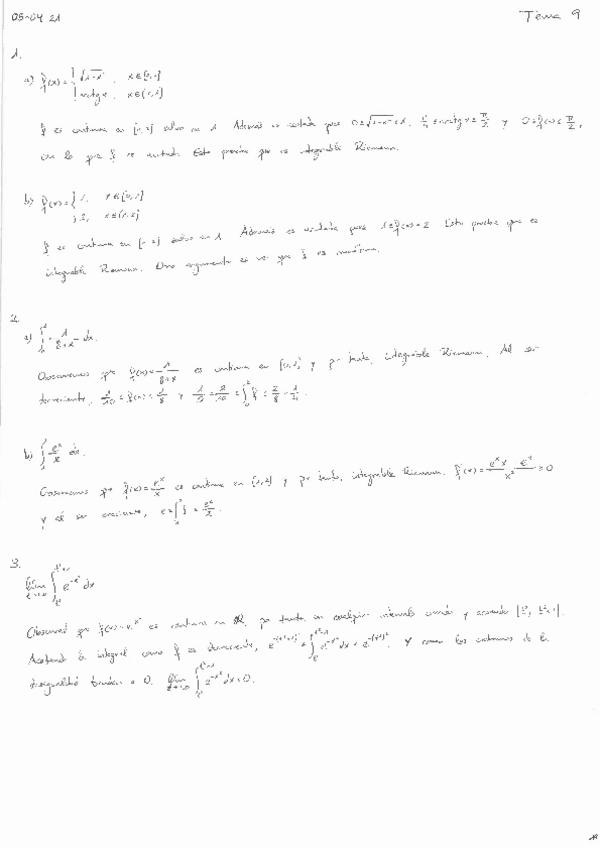 05-04 21
Tema 9
1.
a) f(x) = { √1-x², x∈[0,1]
arctg x, x∈(1,2]
f es continua en [0,2] salvo en 1. Además es acotada pues 0≤√1-x²≤1, π/4 ≤ arctg x ≤ π/2 y 0≤f(x)≤π/2,
con lo que f es acotada. Esto prueba que es integrable Riemann.
b) f(x) = { 1, x∈[0,1]
2, x∈(1,2]
f es continua en [0,2] salvo en 1. Además es acotada pues 1≤f(x)≤2. Esto prueba que es
integrable Riemann. Otro argumento es ver que f es monótona.
2.
a) ∫ 1/(8+x) dx.
Observemos que f(x) = 1/(8+x) es continua en [0,2] y por tanto, integrable Riemann. Al ser
decreciente, 1/10 ≤ f(x) ≤ 1/8 y 1/5 = 2/10 ≤ ∫ f ≤ 2/8 = 1/4.
b) ∫ eˣ/x dx.
Observemos que f(x) = eˣ/x es continua en [1,2] y por tanto, integrable Riemann. f'(x) = (eˣx - eˣ)/x² ≥ 0
y al ser creciente, e ≤ ∫ f ≤ e²/2.
3.
lím ∫ dx
Observemos que f(x) = es continua en ℝ, por tanto en cualquier intervalo cerrado y acotado
Acotando la integral como f es decreciente, Y como los extremos de la
desigualdad tienden a 0, lím ∫ dx = 0.